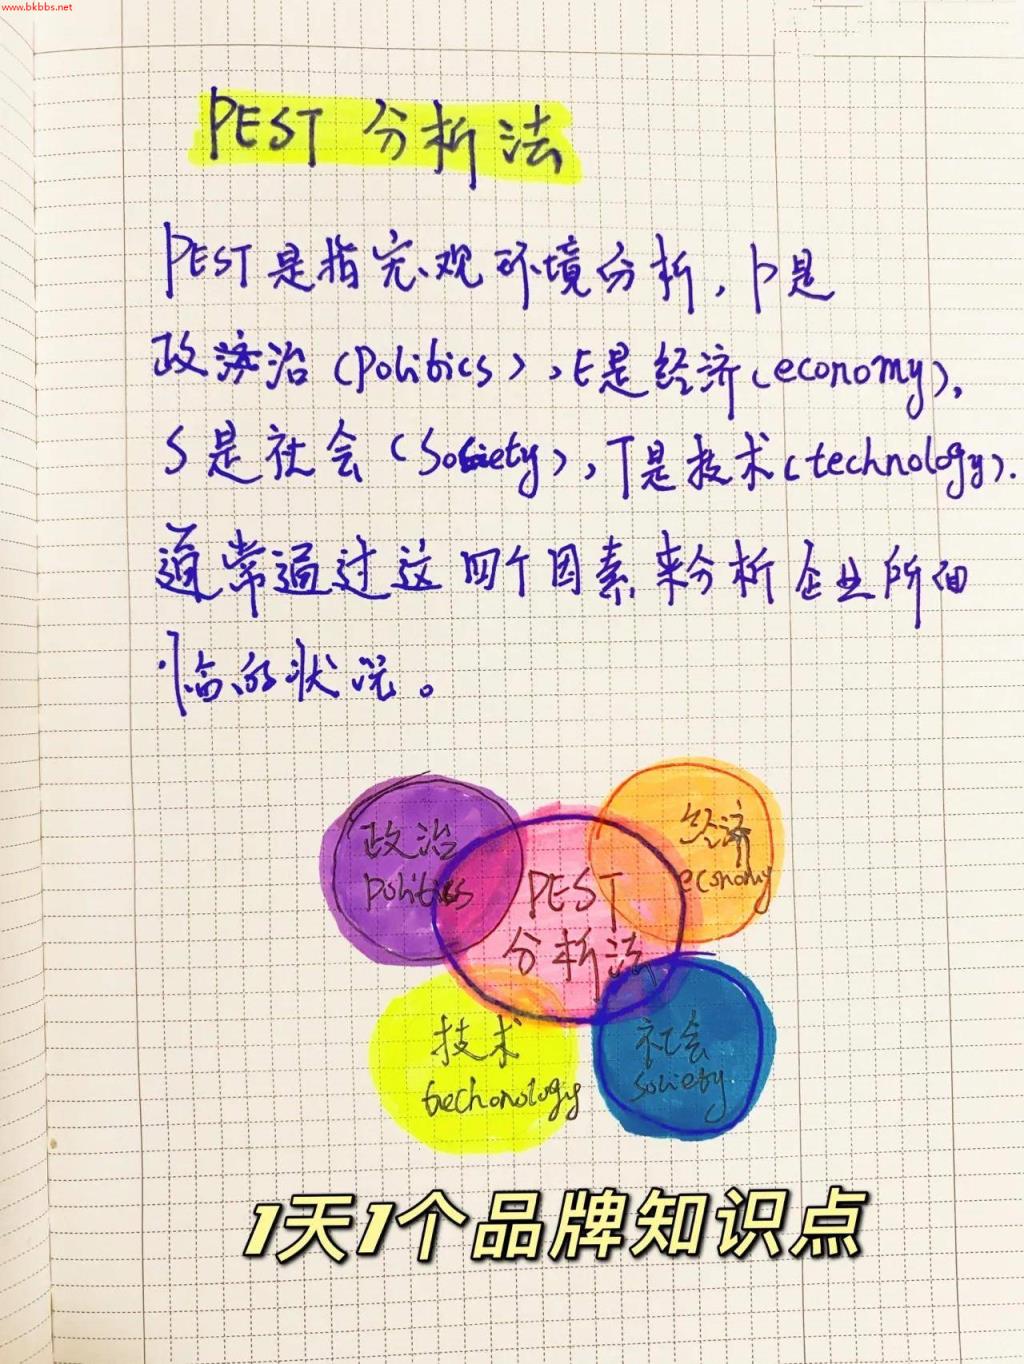 www.bkbbs.net
PEST 分析法
PEST是指宏观环境分析，P是
政治（politics），E是经济（economy），
S是社会（society），T是技术（technology）.
通常通过这四个因素来分析企业所面
临的状况。
政治
politics
经济
economy
PEST
分析法
技术
techonology
社会
society
1天1个品牌知识点